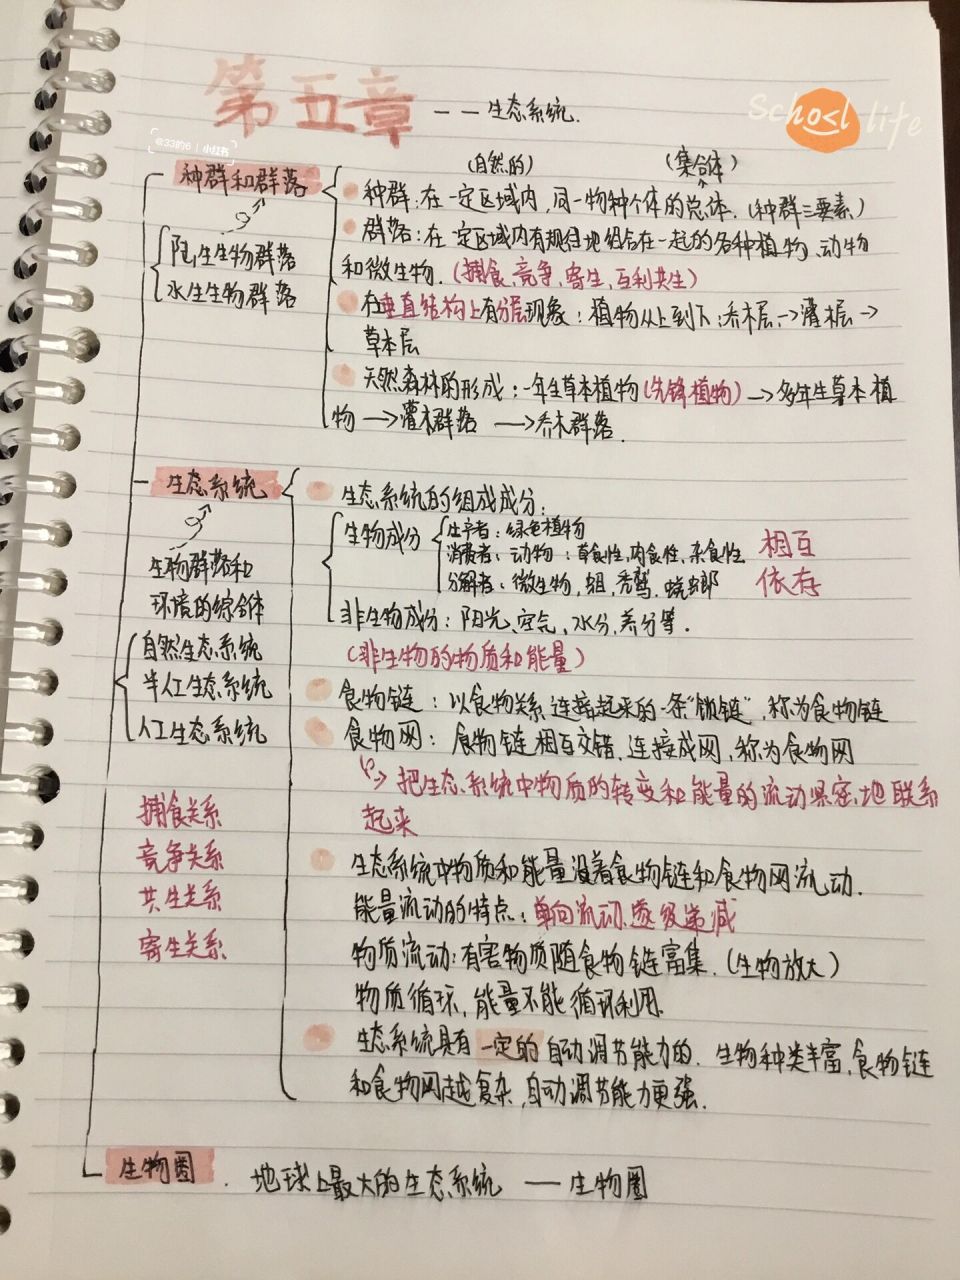 第五章 —— 生态系统.
School life
@33的6 | 小红书
(自然的) (集合体)
种群和群落
种群：在一定区域内,同一物种个体的总体.(种群三要素)
群落：在一定区域内有规律地组合在一起的各种植物、动物
陆生生物群落
和微生物.(捕食、竞争、寄生、互利共生)
水生生物群落
在垂直结构上有分层现象：植物从上到下：乔木层→灌木层→
草本层
天然森林的形成：一年生草本植物(先锋植物)→多年生草本植
物→灌木群落→乔木群落.
生态系统
生态系统的组成成分：
生物成分
生产者：绿色植物
消费者：动物：草食性,肉食性,杂食性
分解者：微生物,蚯,秃鹫,蜣螂
相互
依存
生物群落和
环境的综合体
非生物成分：阳光、空气、水分、养分等.
(非生物的物质和能量)
自然生态系统
半人工生态系统
人工生态系统
食物链：以食物关系连接起来的一条“锁链”,称为食物链
食物网：食物链相互交错,连接成网,称为食物网
把生态系统中物质的转变和能量的流动紧密地联系
起来
捕食关系
竞争关系
共生关系
寄生关系
生态系统中物质和能量沿着食物链和食物网流动.
能量流动的特点：单向流动、逐级递减
物质流动：有害物质随食物链富集.(生物放大)
物质循环,能量不能循环利用.
生态系统具有一定的自动调节能力的.生物种类丰富,食物链
和食物网越复杂,自动调节能力更强.
生物圈.地球上最大的生态系统——生物圈